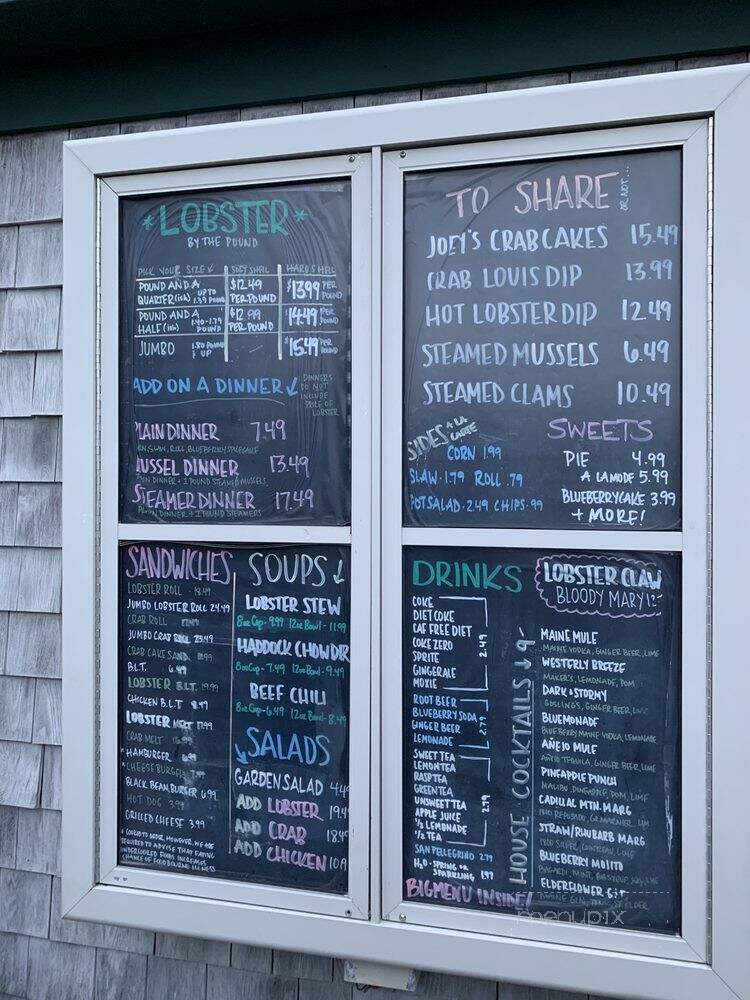 *LOBSTER*
BY THE POUND
PICK YOUR SIZE SOFT SHELL HARD SHELL
POUND AND A QUARTER(ISH) UP TO 1.39 POUND $12.49 PER POUND $13.99 PER POUND
POUND AND A HALF(ISH) 1.40-1.79 POUND $12.99 PER POUND $14.49 PER POUND
JUMBO 1.80 POUND & UP $15.49 PER POUND
ADD ON A DINNER
DINNERS DO NOT INCLUDE PRICE OF LOBSTER
PLAIN DINNER 7.49
CORN, SLAW, ROLL, BLUEBERRY CAKE
MUSSEL DINNER 13.49
PLAIN DINNER + 1 POUND STEAMED MUSSELS
STEAMER DINNER 17.49
PLAIN DINNER + 1 POUND STEAMERS
TO SHARE OR NOT...
JOEY'S CRABCAKES 15.49
CRAB LOUIS DIP 13.99
HOT LOBSTER DIP 12.49
STEAMED MUSSELS 6.49
STEAMED CLAMS 10.49
SIDES A LA CARTE
CORN 1.99
SLAW · 1.79 ROLL .79
POT SALAD · 2.49 CHIPS · .99
SWEETS
PIE 4.99
A LA MODE 5.99
BLUEBERRY CAKE 3.99
+ MORE!
SANDWICHES
LOBSTER ROLL
JUMBO LOBSTER ROLL 24.49
CRAB ROLL
JUMBO CRAB ROLL 23.49
CRAB CAKE SAND.
B.L.T. 6.49
LOBSTER B.L.T. 19.99
CHICKEN B.L.T 8.49
LOBSTER MELT 17.99
CRAB MELT
*HAMBURGER 6.99
*CHEESEBURGER
BLACK BEAN BURGER 6.99
HOT DOG 3.99
GRILLED CHEESE 3.99
* COOKED TO ORDER. HOWEVER, WE ARE
REQUIRED TO ADVISE THAT EATING
UNDERCOOKED FOODS INCREASES
CHANCE OF FOOD BOURNE ILLNESS
SOUPS
LOBSTER STEW
8oz Cup - 9.99 12oz Bowl - 11.99
HADDOCK CHOWDR
8oz Cup - 7.49 12oz Bowl - 9.49
BEEF CHILI
8oz Cup - 6.49 12oz Bowl - 8.49
SALADS
GARDEN SALAD 4.49
ADD LOBSTER 19.4
ADD CRAB 18.4
ADD CHICKEN 10.9
DRINKS
COKE
DIET COKE
CAF FREE DIET
COKE ZERO
SPRITE
GINGERALE
MOXIE
2.49
ROOT BEER
BLUEBERRY SODA
GINGER BEER
LEMONADE
2.79
SWEET TEA
LEMON TEA
RASP TEA
GREEN TEA
UNSWEET TEA
APPLE JUICE
1/2 LEMONADE
1/2 TEA
2.79
SAN PELLEGRINO 2.79
H2O - SPRING OR SPARKLING 1.99
BIG MENU INSIDE!
HOUSE COCKTAILS 9-
LOBSTER CLAW
BLOODY MARY 12-
MAINE MULE
MAINE VODKA, GINGER BEER, LIME
WESTERLY BREEZE
MAKER'S, LEMONADE, POM
DARK & STORMY
GOSLING'S, GINGER BEER, LIME
BLUEMONADE
BLUEBERRY MAINE VODKA, LEMONADE
AÑEJO MULE
AÑEJO TEQUILA, GINGER BEER, LIME
PINEAPPLE PUNCH
MALIBU, PINEAPPLE, POM, LIME
CADILLAC MTN. MARG
STRAW/RHUBARB MARG
BLUEBERRY MOJITO
ELDERFLOWER G&T
menupix